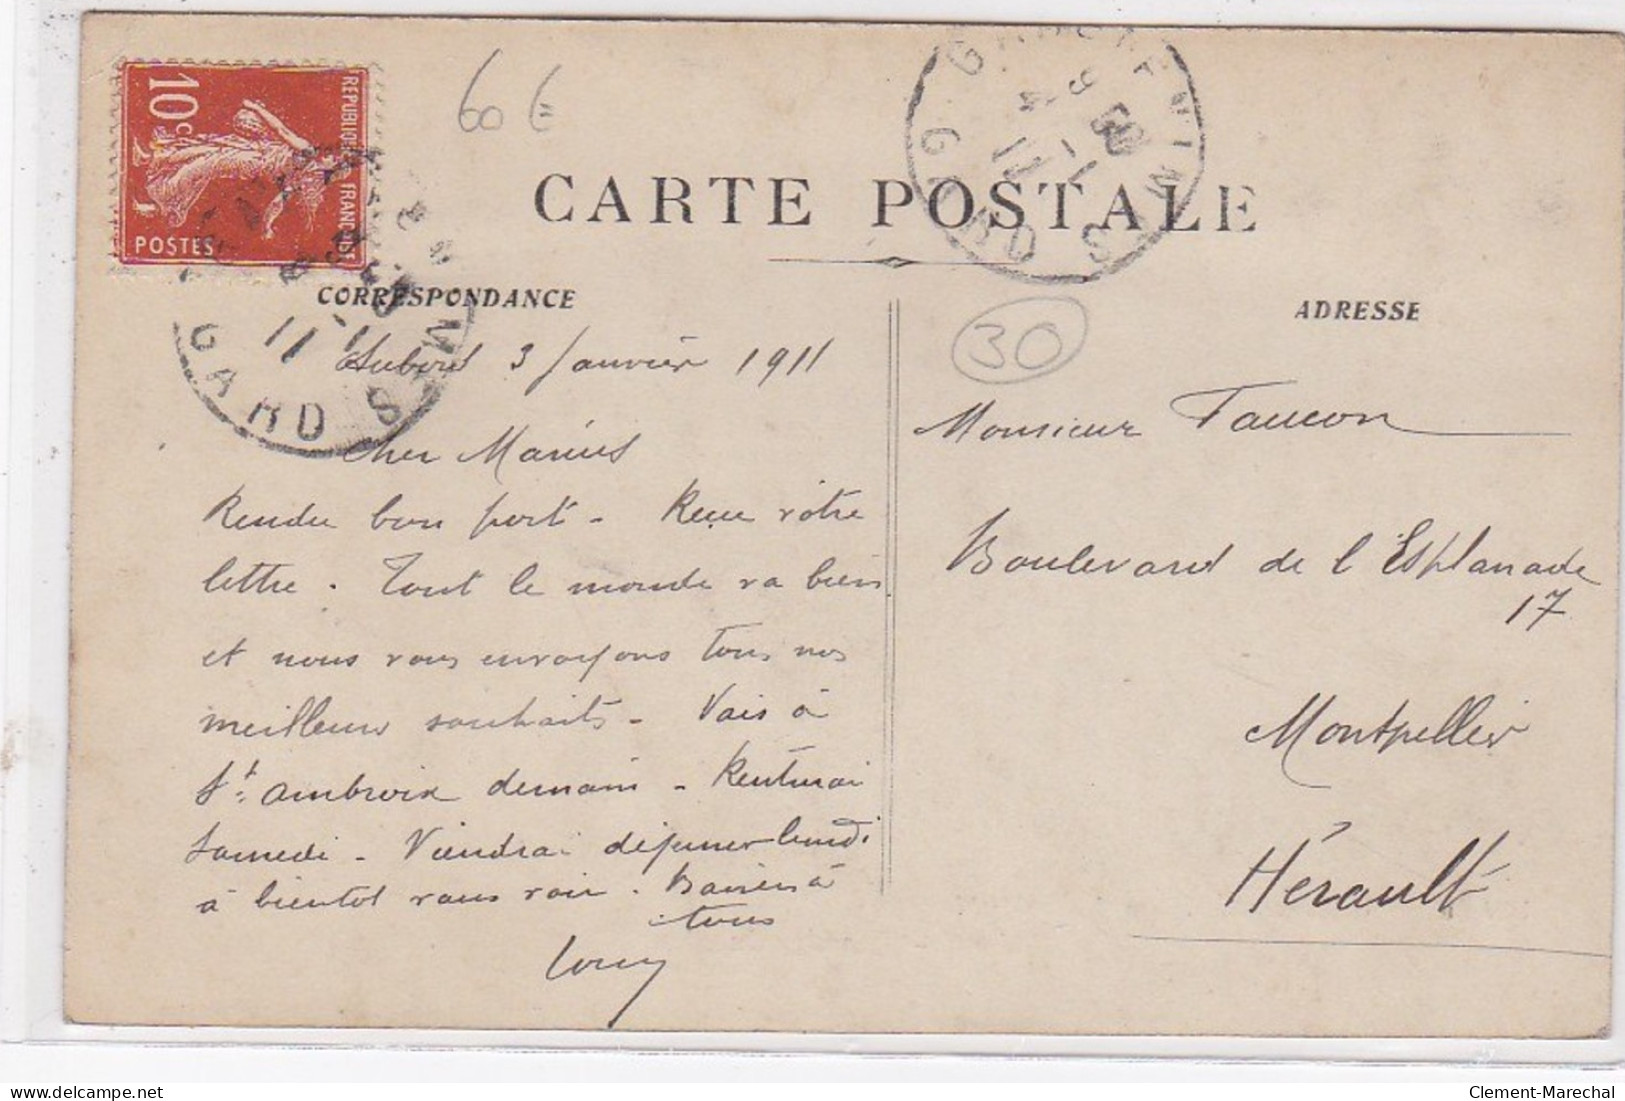 60 €
RÉPUBLIQUE FRANÇAISE
10 c
POSTES
CARTE POSTALE
CORRESPONDANCE
GARD
11
Aubord 3 Janvier 1911
Cher Marius
Rendu bon port - Reçu vôtre
lettre. Tout le monde va bien
et nous vous envoyons tous nos
meilleurs souhaits - Vais à
St Ambroix demain - Rentrerai
Samedi - Viendrai déjeuner lundi
à bientot vous voir. Baisers à
tous
ADRESSE
30
Monsieur Faucon
Boulevard de l'Esplanade
17
Montpellier
Hérault
Clement-Marechal